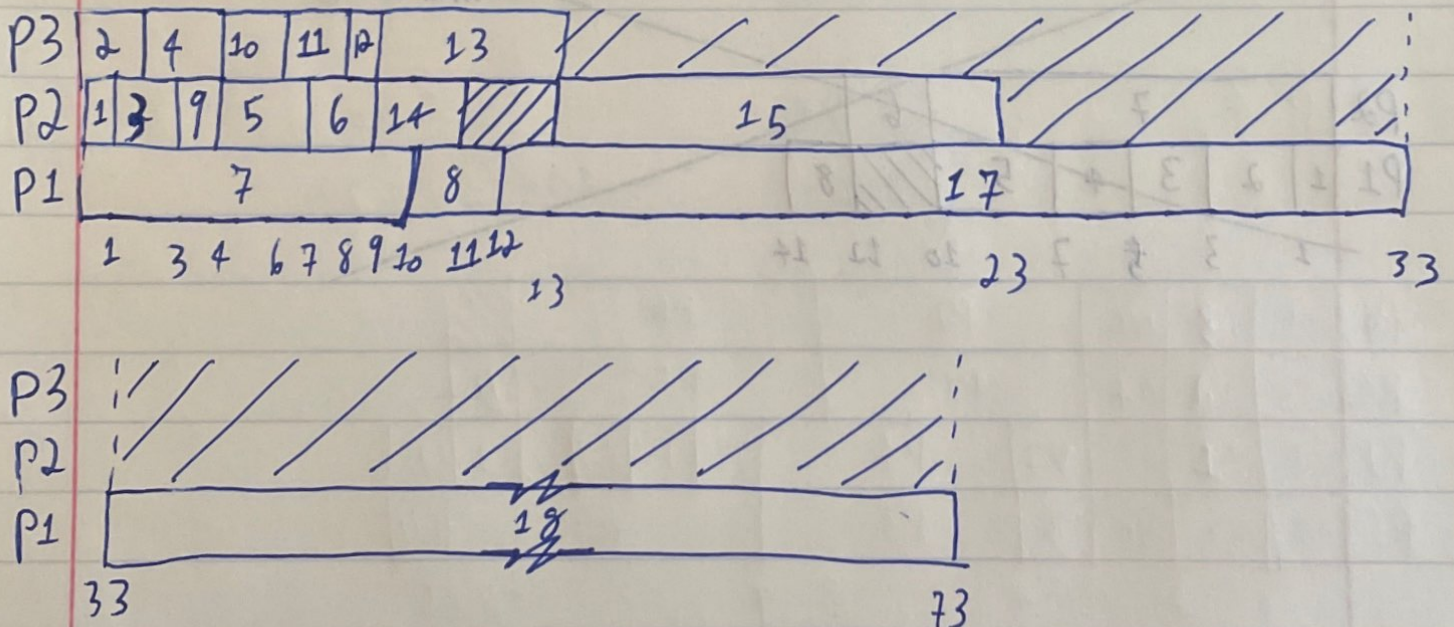 P3 2 4 10 11 12 13
P2 1 3 9 5 6 14 15
P1 7 8 17
1 3 4 6 7 8 9 10 11 12 13 23 33
P3
P2
P1 18
33 73